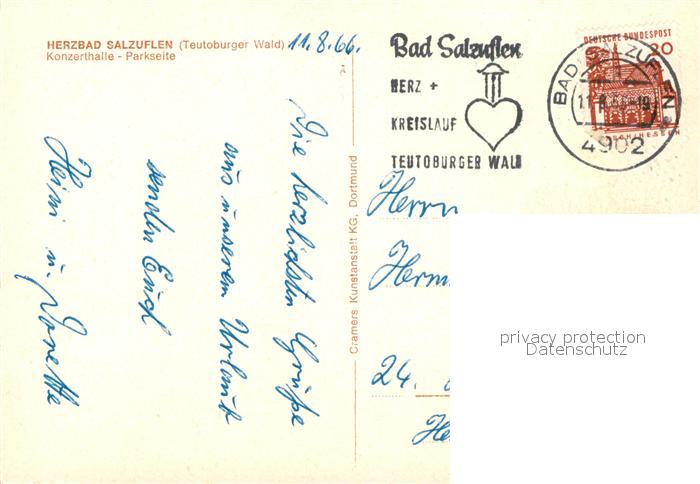 HERZBAD SALZUFLEN (Teutoburger Wald) 11.8.66.
Konzerthalle - Parkseite
Die herzlichsten Grüße
aus unserem Urlaub
senden Euch
Heini u. Dorette
Cramers Kunstanstalt KG, Dortmund
Bad Salzuflen
HERZ +
KREISLAUF
TEUTOBURGER WALD
DEUTSCHE BUNDESPOST
20
BAD SALZUFLEN
4902
Herrn
24.
privacy protection
Datenschutz